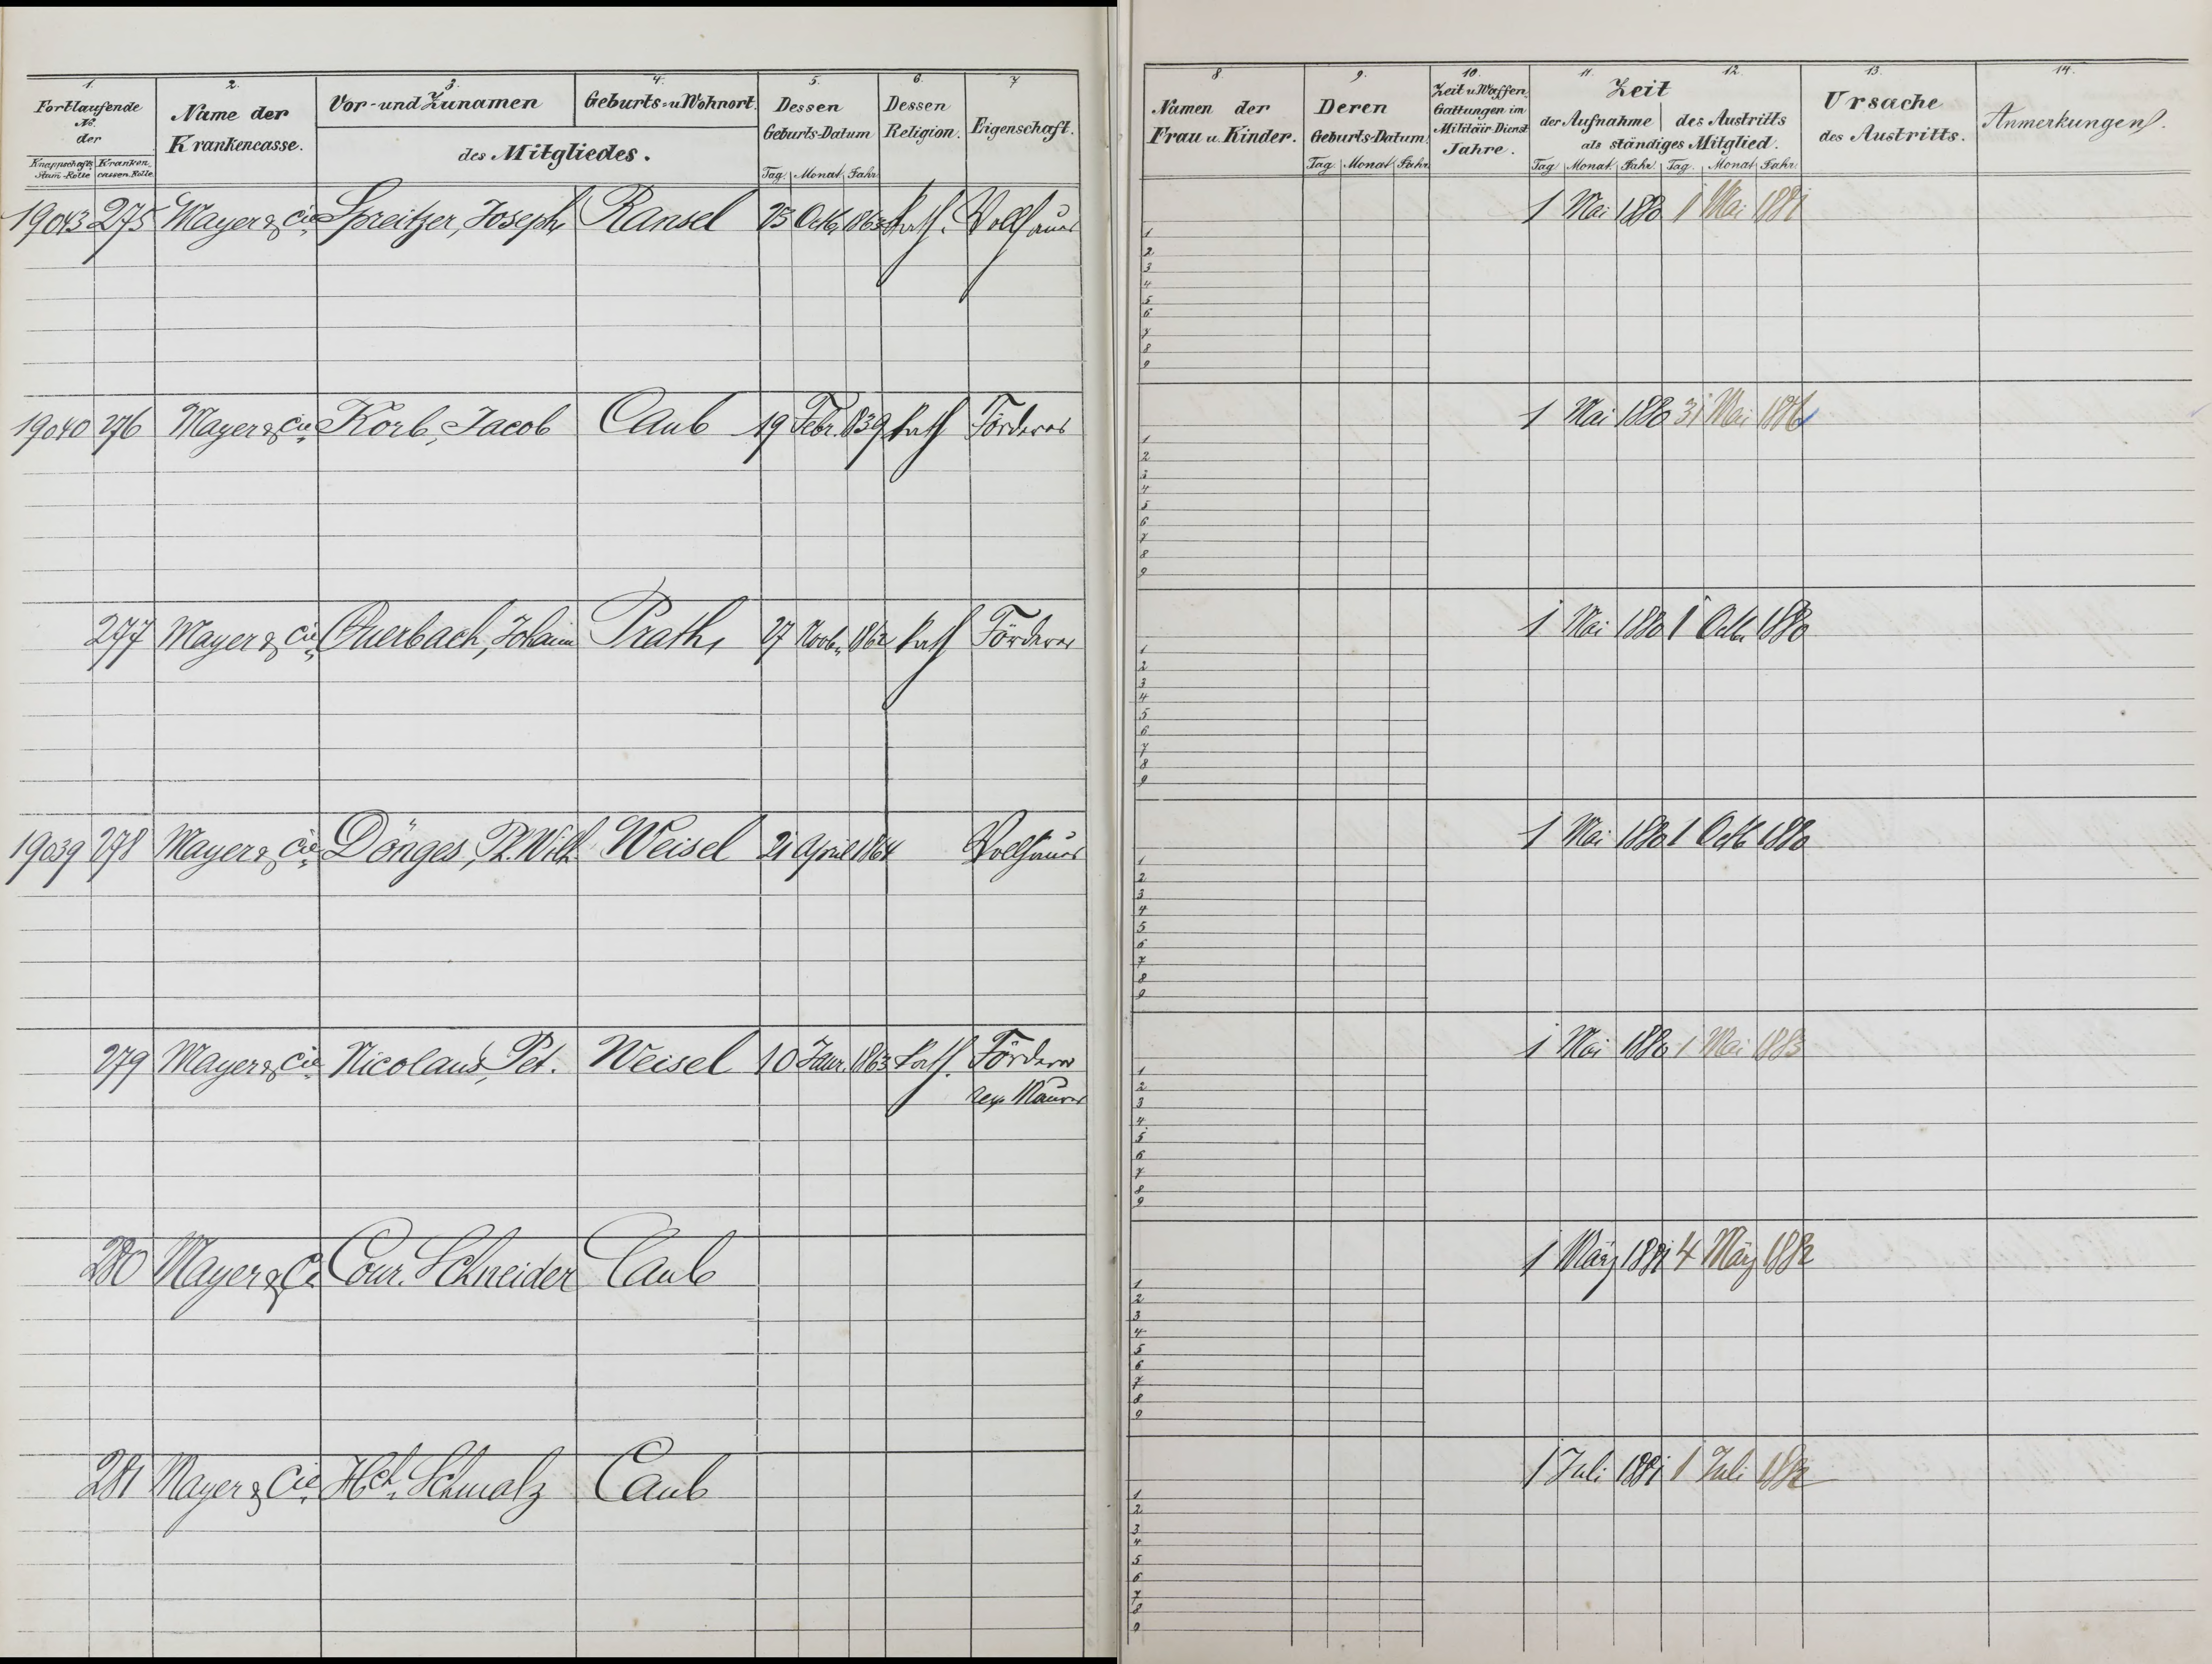 1. 2. 3. 4. 5. 6. 7
Fortlaufende No. der
Knappschafts Stam-Rolle Kranken cassen-Rolle
Name der Krankencasse.
Vor- und Zunamen Geburts- u. Wohnort.
des Mitgliedes.
Dessen Geburts-Datum
Tag. Monat. Jahr.
Dessen Religion.
Eigenschaft.
19043 275 Mayer & Cie Spreitzer, Joseph Ransel 23 Octb. 1863 kath. Vollhauer
19040 276 Mayer & Cie Korb, Jacob Caub 19 Febr. 1839 kath Förderer
277 Mayer & Cie Auerbach, Johann Prath, 27 Novb. 1862 kath Förderer
19039 278 Mayer & Cie Dönges, Ph. Wilh. Weisel 21 April 1864 Vollhauer
279 Mayer & Cie Nicolaus, Pet. Weisel 10 Janr. 1863 kath. Förderer
Maurer
280 Mayer & Ci Cour. Schneider Caub
281 Mayer & Cie Hch. Schmalz Caub
8. 9. 10. 11. 12. 13. 14.
Namen der Frau u. Kinder.
Deren Geburts-Datum
Tag. Monat. Jahr.
Zeit u. Waffen Gattungen im Militair-Dienst Jahre.
Zeit
der Aufnahme des Austritts
als ständiges Mitglied.
Tag. Monat. Jahr. Tag. Monat. Jahr.
Ursache des Austritts.
Anmerkungen.
1 Mai 1880 1 Mai 1881
1
2
3
4
5
6
7
8
9
1 Mai 1880 31 Mai 1886
1
2
3
4
5
6
7
8
9
1 Mai 1880 1 Octb 1880
1
2
3
4
5
6
7
8
9
1 Mai 1880 1 Octb 1880
1
2
3
4
5
6
7
8
9
1 Mai 1880 1 Mai 1883
1
2
3
4
5
6
7
8
9
1 März 1881 4 März 1882
1
2
3
4
5
6
7
8
9
1 Juli 1881 1 Juli 1882
1
2
3
4
5
6
7
8
9